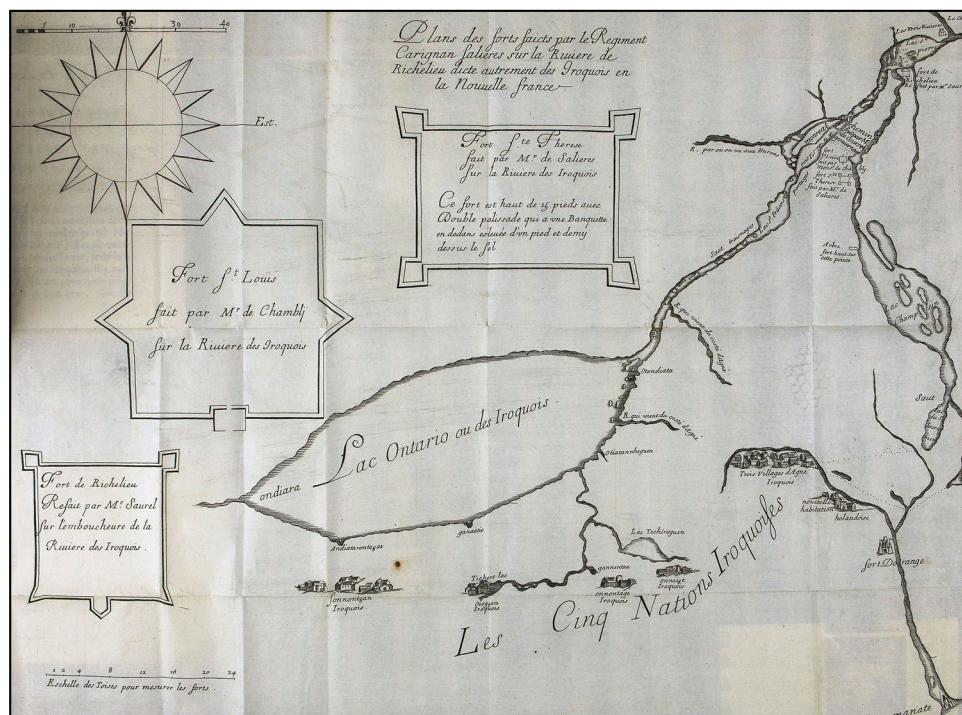 10 30 40
Plans des forts faicts par le Regiment
Carignan Salieres sur la Riuiere de
Richelieu dicte autrement des Iroquois en
la Nouuelle france
Est.
Fort s.te Therese
fait par M.r de Salieres
sur la Riuiere des Iroquois
Ce fort est haut de 15 pieds auec
Double palissade qui a vne Banquette
en dedans esleuée d'vn pied et demy
dessus le sol
Fort s.t Loüis
fait par M.r de Chamblj
sur la Riuiere des Iroquois
Fort de Richelieu
Refait par M.r Saurel
sur l'emboucheure de la
Riuiere des Iroquois.
1 2 4 8 12 16 20 24
Eschelle des Toises pour mesurer les forts.
Les Trois Riuieres
Lac S.
pierre
fort de
Richelieu
R. par ou on va aux Hurons
fort s.te
Therese
fait par M.r de
Salieres
Arbre
fort haut sur
cette pointe
Lac
Saut
R. qui vient du costé d'Agné
Otondiata
R. qui vient du costé d'Agné
Otiatannheguen
Lac Ontario ou des Iroquois.
ondiara
Andiatarontegat
ganaatio
Lac Techiroguen
gannentaa
Sonnontoan
Iroquois
Oiogoen
Iroquois
onnontagé
Iroquois
onneiȣt
Iroquois
Trois Villages d'Agné
Iroquois
nouuelle
habitation
holandoise
fort Dorange
Les Cinq Nations Iroquoises
manate